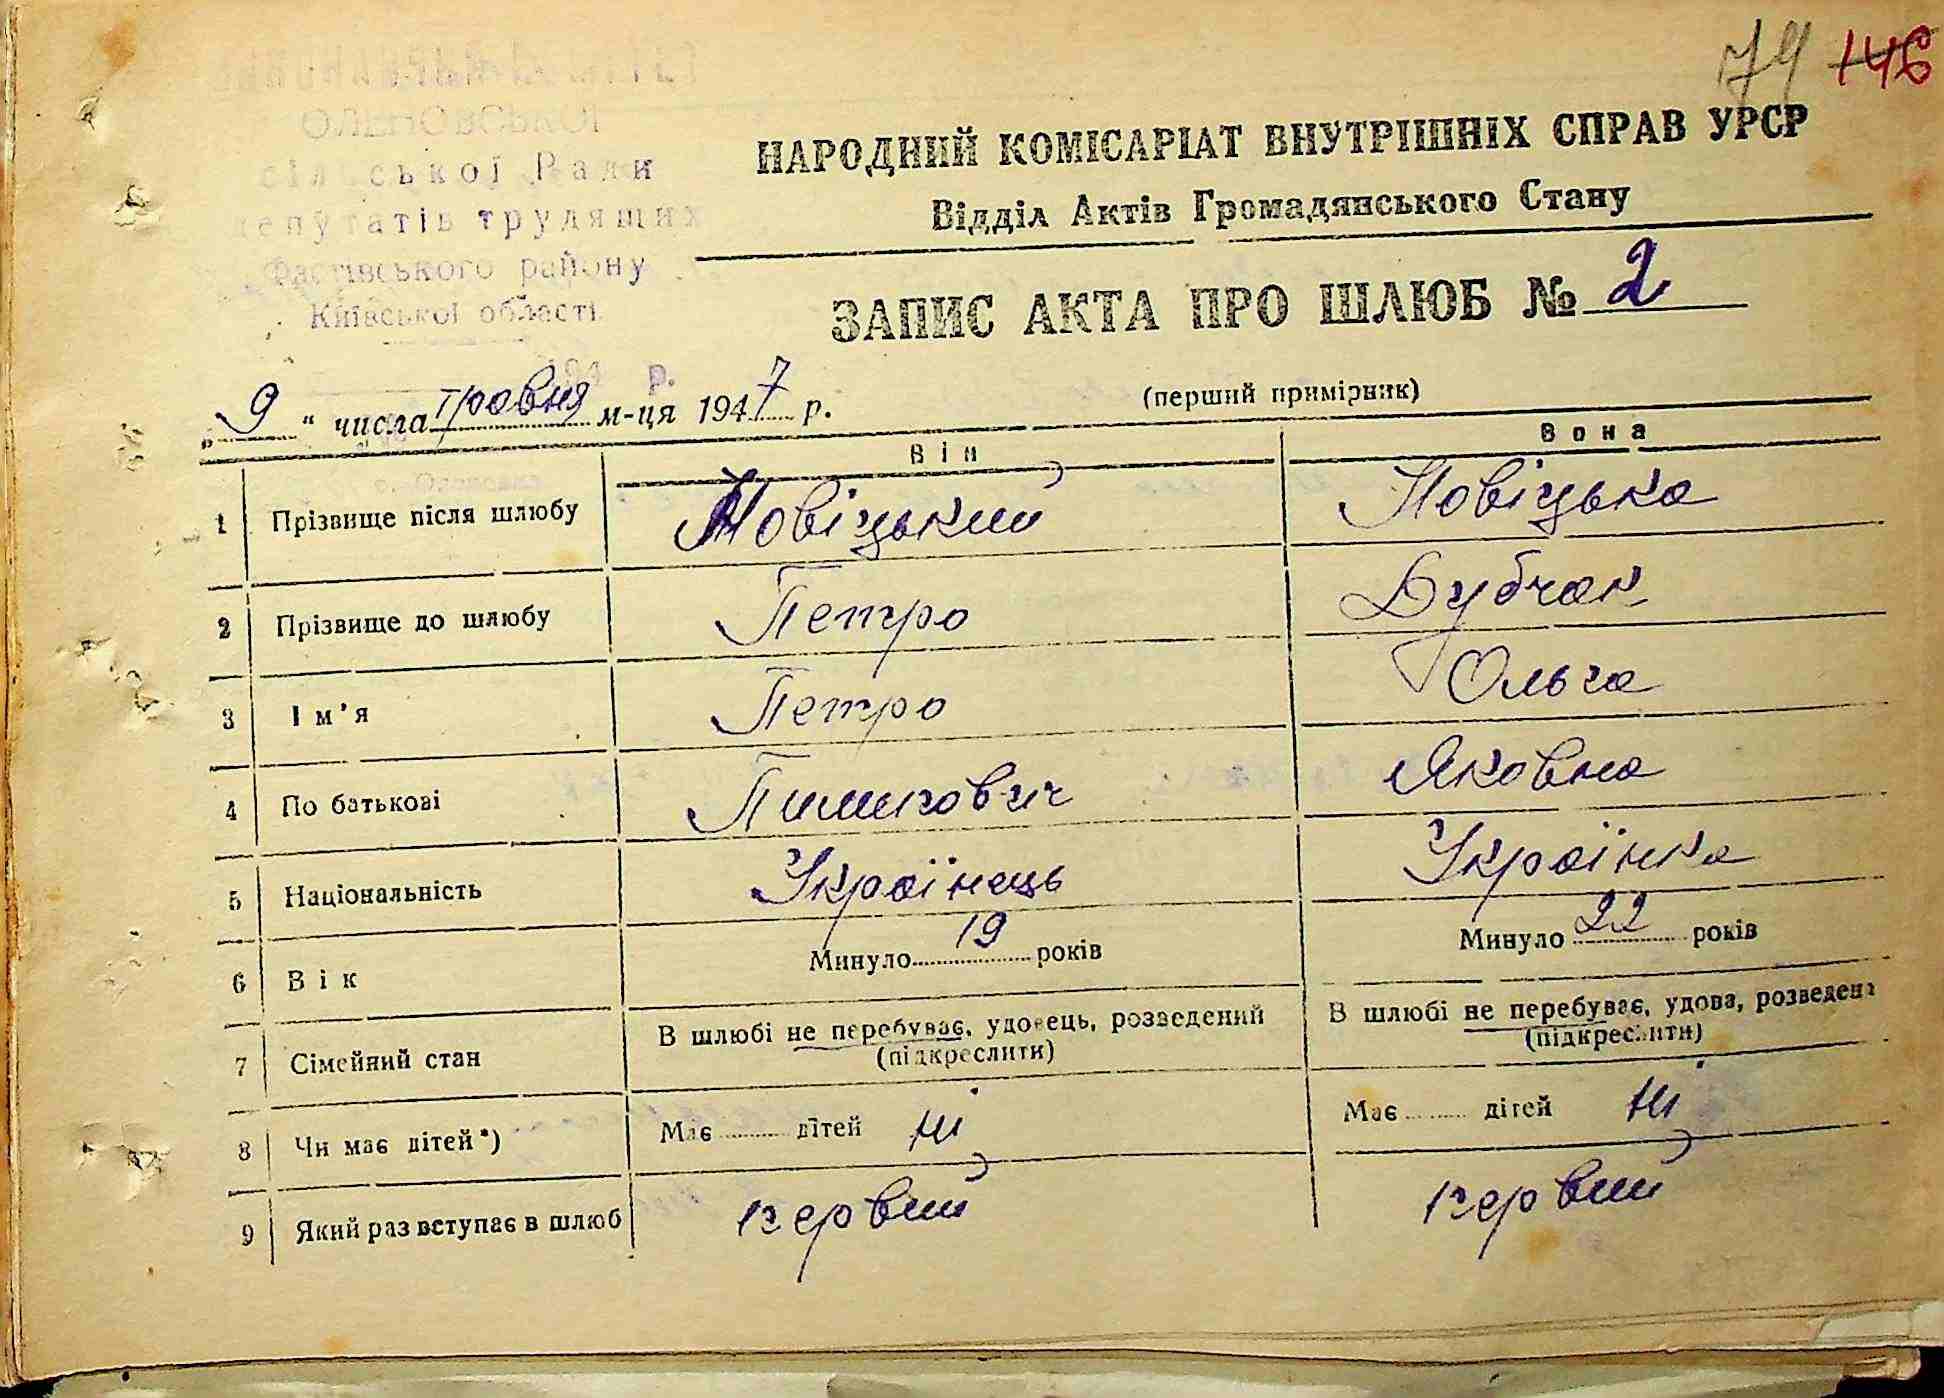 74 146
ОЛЕНОВСЬКОЇ
сільської Ради
депутатів трудящих
Фастівського району
Київської області
194 р.
НАРОДНИЙ КОМІСАРІАТ ВНУТРІШНІХ СПРАВ УРСР
Відділ Актів Громадянського Стану
ЗАПИС АКТА ПРО ШЛЮБ № 2
„9“ числа травня м-ця 1947 р.
(перший примірник)
Він Вона
1 Прізвище після шлюбу Новіцький Новіцька
2 Прізвище до шлюбу Петро Дубчак
3 Ім’я Петро Ольга
4 По батькові Пилипович Яковна
5 Національність Українець Українка
6 Вік Минуло 19 років Минуло 22 років
7 Сімейний стан В шлюбі не перебуває, удовець, розведений (підкреслити) В шлюбі не перебуває, удова, розведена (підкреслити)
8 Чи має дітей*) Має дітей ні Має дітей ні
9 Який раз вступає в шлюб первий первий